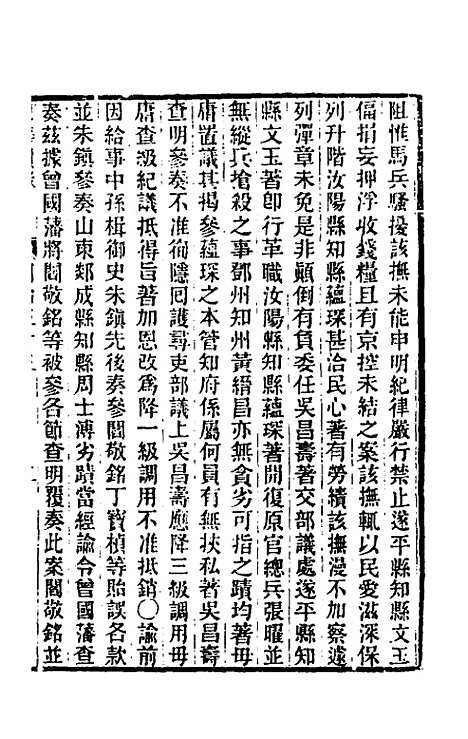 阻惟馬兵騷擾該撫未能申明紀律嚴行禁止遂平縣知縣文玉
偪捐妄押浮收錢糧且有京控未結之案該撫輒以民愛滋深保
列升階汝陽縣知縣蘊琛甚洽民心著有勞績該撫漫不加察遽
列彈章未免是非顛倒有負委任吳昌壽著交部議處遂平縣知
縣文玉著卽行革職汝陽縣知縣蘊琛著開復原官總兵張曜並
無縱兵搶殺之事鄧州知州黃縉昌亦無貪劣可指之蹟均著毋
庸置議其揭參蘊琛之本管知府係屬何員有無挾私著吳昌壽
查明參奏不准徇隱囘護尋吏部議上吳昌壽應降三級調用毋
庸查級紀議抵得旨著加恩改爲降一級調用不准抵銷〇諭前
因給事中孫楫御史朱鎮先後奏參閻敬銘丁寶楨等貽誤各款
並朱鎮參奏山東郯成縣知縣周士溥劣蹟當經諭令曾國藩查
奏茲據曾國藩將閻敬銘等被參各節查明覆奏此案閻敬銘並